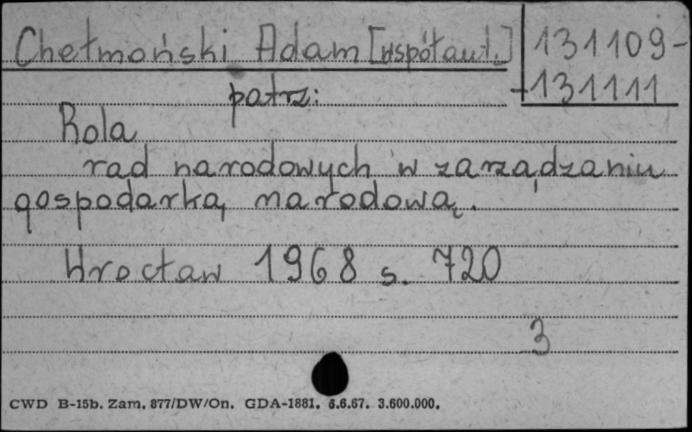 Chełmoński Adam [współaut.] 131109-
-131111
patrz:
Rola
rad narodowych w zarządzaniu
gospodarką narodową.
Wrocław 1968 s. 720
3
CWD B-15b. Zam. 877/DW/On. GDA-1881. 6.6.67. 3.600.000.